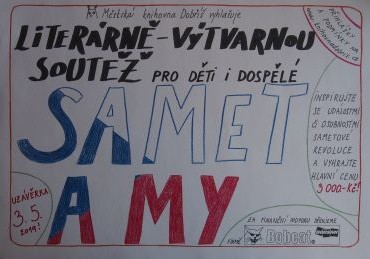 Městská knihovna Dobříš vyhlašuje
LITERÁRNĚ-VÝTVARNOU
SOUTĚŽ PRO DĚTI I DOSPĚLÉ
PŘIHLÁŠKY
A PODMÍNKY NA
SAMET
A MY
INSPIRUJTE
SE UDÁLOSTMI
ČI OSOBNOSTMI
SAMETOVÉ
REVOLUCE
A VYHRAJTE
HLAVNÍ CENU
3 000,-Kč!
UZÁVĚRKA
3. 5.
2019!
ZA FINANČNÍ PODPORU DĚKUJEME
FIRMĚ Bobcat